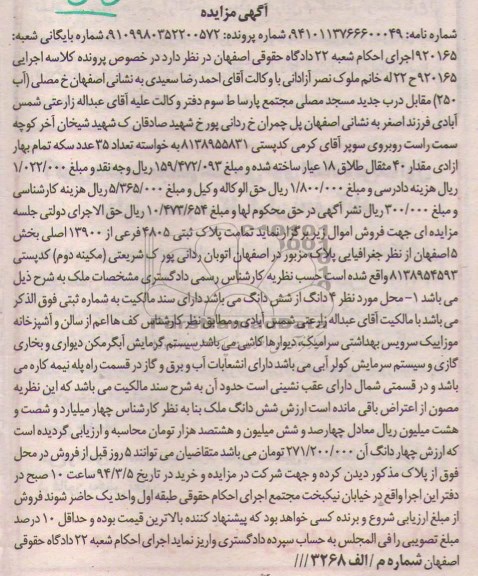 آگهی مزایده
شماره نامه: ۹۴۱۰۱۱۳۷۶۶۶۰۰۰۴۹، شماره پرونده: ۹۱۰۹۹۸۰۳۵۲۲۰۰۵۷۲، شماره بایگانی شعبه:
۹۲۰۱۶۵ اجرای احکام شعبه ۲۲ دادگاه حقوقی اصفهان در نظر دارد در خصوص پرونده کلاسه اجرایی
۹۲۰۱۶۵ ح ۲۲ له خانم ملوک نصر آزادانی با وکالت آقای احمد رضا سعیدی به نشانی اصفهان خ مصلی (آب
۲۵۰) مقابل درب جدید مسجد مصلی مجتمع پارسا ط سوم دفتر وکالت علیه آقای عبداله زارعتی شمس
آبادی فرزند اصغر به نشانی اصفهان پل چمران خ ردانی پور خ شهید صادقان ک شهید شیخان آخر کوچه
سمت راست روبروی سوپر آقای کرمی کدپستی ۸۱۳۸۹۵۵۸۳۱ به خواسته تعداد ۳۵ عدد سکه تمام بهار
ازادی مقدار ۴۰ مثقال طلاق ۱۸ عیار ساخته شده و مبلغ ۱۵۹/۴۷۲/۰۹۳ ریال وجه نقد و مبلغ ۱/۰۲۲/۰۰۰
ریال هزینه دادرسی و مبلغ ۱/۸۰۰/۰۰۰ ریال حق الوکاله وکیل و مبلغ ۵/۳۶۵/۰۰۰ ریال هزینه کارشناسی
و مبلغ ۳۰۰/۰۰۰ ریال نشر آگهی در حق محکوم لها و مبلغ ۱۰/۴۷۳/۶۵۴ ریال حق الاجرای دولتی جلسه
مزایده ای جهت فروش اموال زیر برگزار نماید تمامت پلاک ثبتی ۴۸۰۵ فرعی از ۱۳۹۰۰ اصلی بخش
۵ اصفهان از نظر جغرافیایی پلاک مزبور در اصفهان اتوبان ردانی پور ک شریعتی (مکینه دوم) کدپستی
۸۱۳۸۹۵۴۵۹۳ واقع شده است حسب نظریه کارشناس رسمی دادگستری مشخصات ملک به شرح ذیل
می باشد ۱- محل مورد نظر ۴ دانگ از شش دانگ می باشد دارای سند مالکیت به شماره ثبتی فوق الذکر
می باشد با مالکیت آقای عبداله زارعتی شمس آبادی و مطابق نظر کارشناس کف ها اعم از سالن و آشپزخانه
موزاییک سرویس بهداشتی سرامیک، دیوارها کاشی می باشد سیستم گرمایش آبگرمکن دیواری و بخاری
گازی و سیستم سرمایش کولر آبی می باشد دارای انشعابات آب و برق و گاز در قسمت راه پله نیمه کاره می
باشد و در قسمتی شمال دارای عقب نشینی است حدود آن به شرح سند مالکیت می باشد که این نظریه
مصون از اعتراض باقی مانده است ارزش شش دانگ ملک بنا به نظر کارشناس چهار میلیارد و شصت و
هشت میلیون ریال معادل چهارصد و شش میلیون و هشتصد هزار تومان محاسبه و ارزیابی گردیده است
که ارزش چهار دانگ آن ۲۷۱/۲۰۰/۰۰۰ تومان می باشد متقاضیان می توانند ۵ روز قبل از فروش در محل
فوق از پلاک مذکور دیدن کرده و جهت شرکت در مزایده و خرید در تاریخ ۹۴/۳/۵ ساعت ۱۰ صبح در
دفتر این اجرا واقع در خیابان نیکبخت مجتمع اجرای احکام حقوقی طبقه اول واحد یک حاضر شوند فروش
از مبلغ ارزیابی شروع و برنده کسی خواهد بود که پیشنهاد کننده بالاترین قیمت بوده و حداقل ۱۰ درصد
مبلغ تصویبی را فی المجلس به حساب سپرده دادگستری واریز نماید اجرای احکام شعبه ۲۲ دادگاه حقوقی
اصفهان شماره م / الف ۳۲۶۸ ///